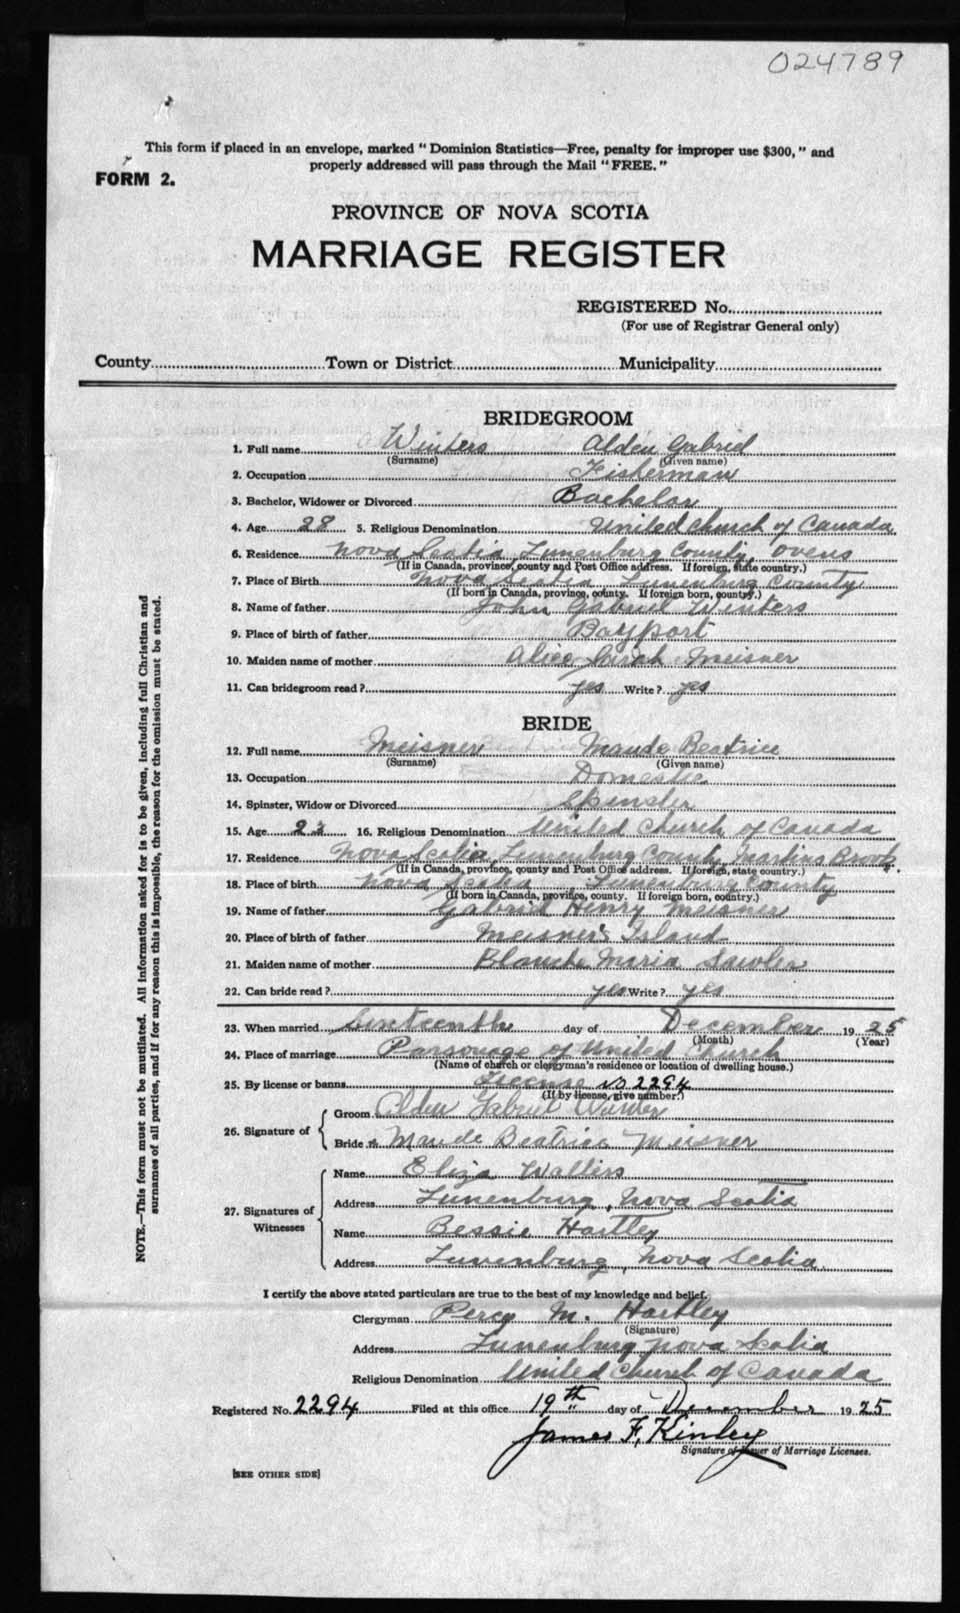 024789
This form if placed in an envelope, marked "Dominion Statistics—Free, penalty for improper use $300," and
properly addressed will pass through the Mail "FREE."
FORM 2.
PROVINCE OF NOVA SCOTIA
MARRIAGE REGISTER
REGISTERED No.
(For use of Registrar General only)
County Town or District Municipality
BRIDEGROOM
1. Full name Winters Alden Gabriel
(Surname) (Given name)
2. Occupation Fisherman
3. Bachelor, Widower or Divorced Bachelor
4. Age 28 5. Religious Denomination United Church of Canada
6. Residence Nova Scotia Lunenburg County, Ovens
(If in Canada, province, county and Post Office address. If foreign, state country.)
7. Place of Birth Nova Scotia Lunenburg County
(If born in Canada, province, county. If foreign born, country.)
8. Name of father John Gabriel Winters
9. Place of birth of father Bayport
10. Maiden name of mother Alice Sarah Meisner
11. Can bridegroom read? yes Write? yes
BRIDE
12. Full name Meisner Maude Beatrice
(Surname) (Given name)
13. Occupation Domestic
14. Spinster, Widow or Divorced Spinster
15. Age 23 16. Religious Denomination United Church of Canada
17. Residence Nova Scotia, Lunenburg County, Martins Brook.
(If in Canada, province, county and Post Office address. If foreign, state country.)
18. Place of birth Nova Scotia Lunenburg County
(If born in Canada, province, county. If foreign born, country.)
19. Name of father Gabriel Henry Meisner
20. Place of birth of father Meisner's Island
21. Maiden name of mother Blanche Maria Sawler
22. Can bride read? yes Write? yes
23. When married Sixteenth day of December 1925
(Month) (Year)
24. Place of marriage Parsonage of United Church
(Name of church or clergyman's residence or location of dwelling house.)
25. By license or banns License No 2294
(If by license, give number.)
26. Signature of Groom Alden Gabriel Winters
Bride Maude Beatrice Meisner
27. Signatures of Witnesses
Name Eliza Wallins
Address Lunenburg, Nova Scotia
Name Bessie Hartley
Address Lunenburg, Nova Scotia.
I certify the above stated particulars are true to the best of my knowledge and belief.
Clergyman Percy M. Hartley
(Signature)
Address Lunenburg Nova Scotia
Religious Denomination United Church of Canada
Registered No. 2294 Filed at this office 19th day of December 1925
James F. Kinley
Signature of Issuer of Marriage Licenses.
[SEE OTHER SIDE]
NOTE.—This form must not be mutilated. All information asked for is to be given, including full Christian and
surnames of all parties, and if for any reason this is impossible, the reason for the omission must be stated.